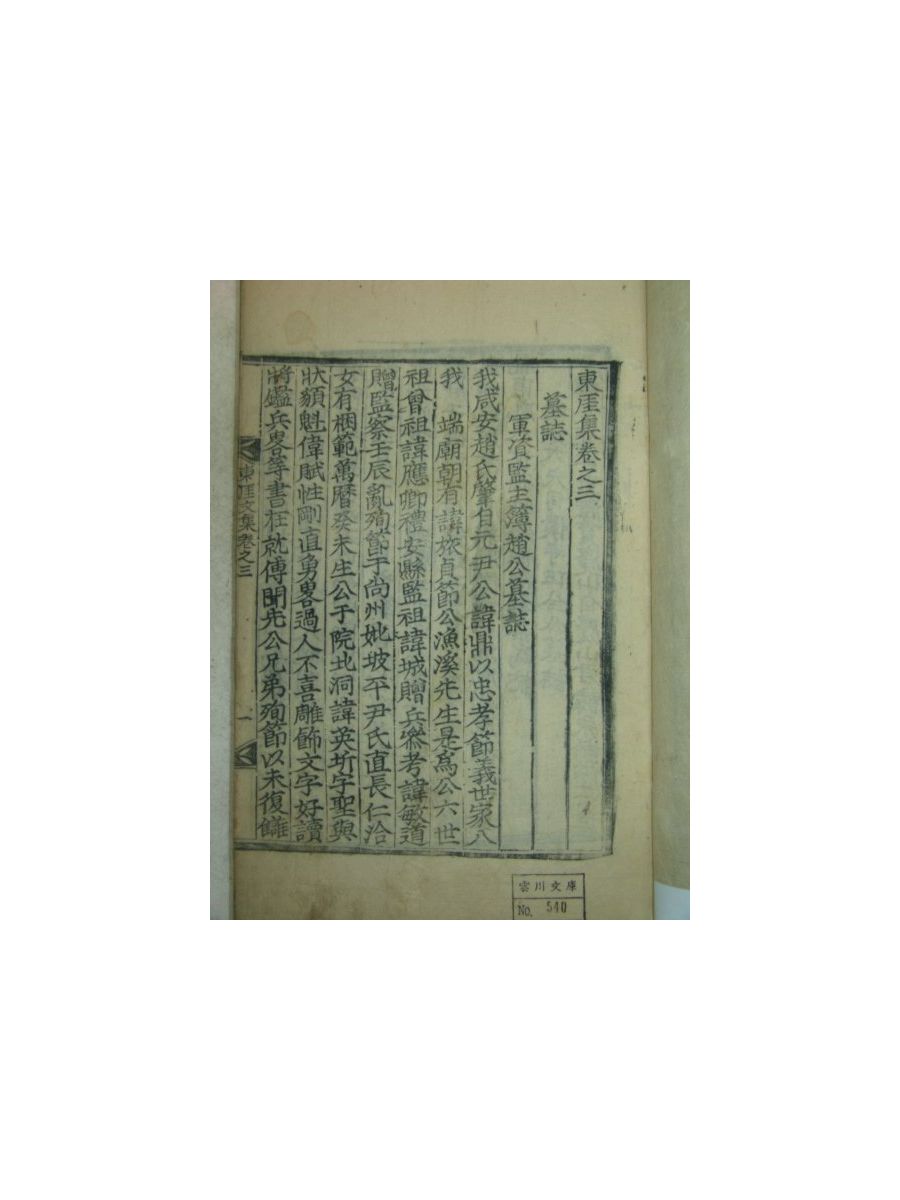 東厓集卷之三
墓誌
軍資監主簿趙公墓誌
我咸安趙氏肇自元尹公諱鼎以忠孝節義世家入
我 端廟朝有諱旅貞節公漁溪先生是爲公六世
祖曾祖諱應卿禮安縣監祖諱城贈兵參考諱敏道
贈監察壬辰亂殉節于尙州妣坡平尹氏直長仁洽
女有梱範萬曆癸未生公于院北洞諱英圻字聖與
狀貌魁偉賦性剛直勇畧過人不喜雕餙文字好讀
將鑑兵畧等書在就傅聞先公兄弟殉節以未復讎
東厓文集卷之三
一
雲川文庫
No. 540